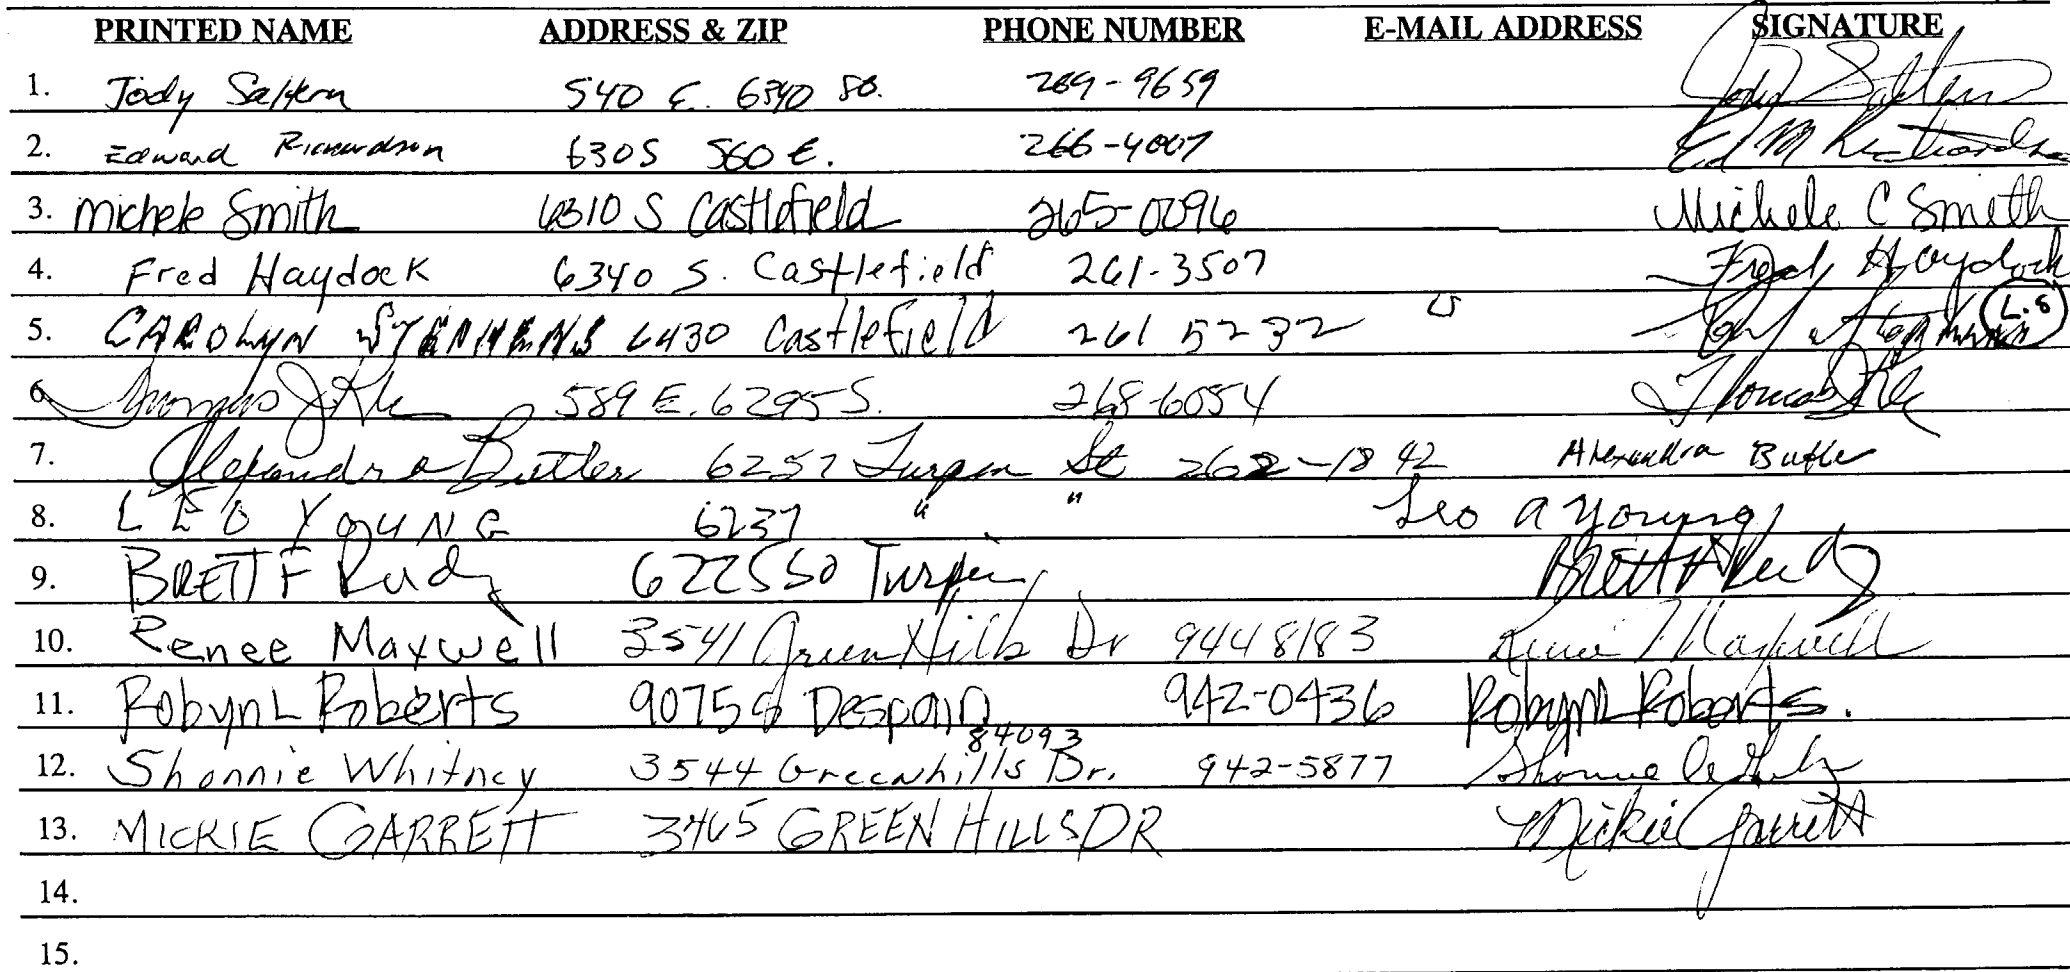 PRINTED NAME ADDRESS & ZIP PHONE NUMBER E-MAIL ADDRESS SIGNATURE
1. Jody 540 E. 6340 So. 269-9659 Jody
2. Edward Richardson 6305 560 E. 266-4007 Ed M Richardson
3. Michele Smith 6310 S Castlefield 265-0096 Michele C Smith
4. Fred Haydock 6340 S. Castlefield 261-3507 Fred Haydock
5. CAROLYN 6430 Castlefield 261 5232 L.S
6. Thomas J 589 E. 6295 S. 268-6054 Thomas J
7. Alexandra Butler 6257 Turpin St 262-1842 Alexandra Butler
8. LEO YOUNG 6237 " " Leo A Young
9. BRETT F Rudy 6225 So Turpin Brett F Rudy
10. Renee Maxwell 3541 Green Hills Dr 944 8183 Renee Maxwell
11. Robyn L Roberts 9075 Despain 942-0436 Robyn L Roberts.
84093
12. Shonnie Whitney 3544 Greenhills Dr. 942-5877 Shonnie
13. MICKIE GARRETT 3465 GREEN HILLS DR Mickie Garrett
14.
15.